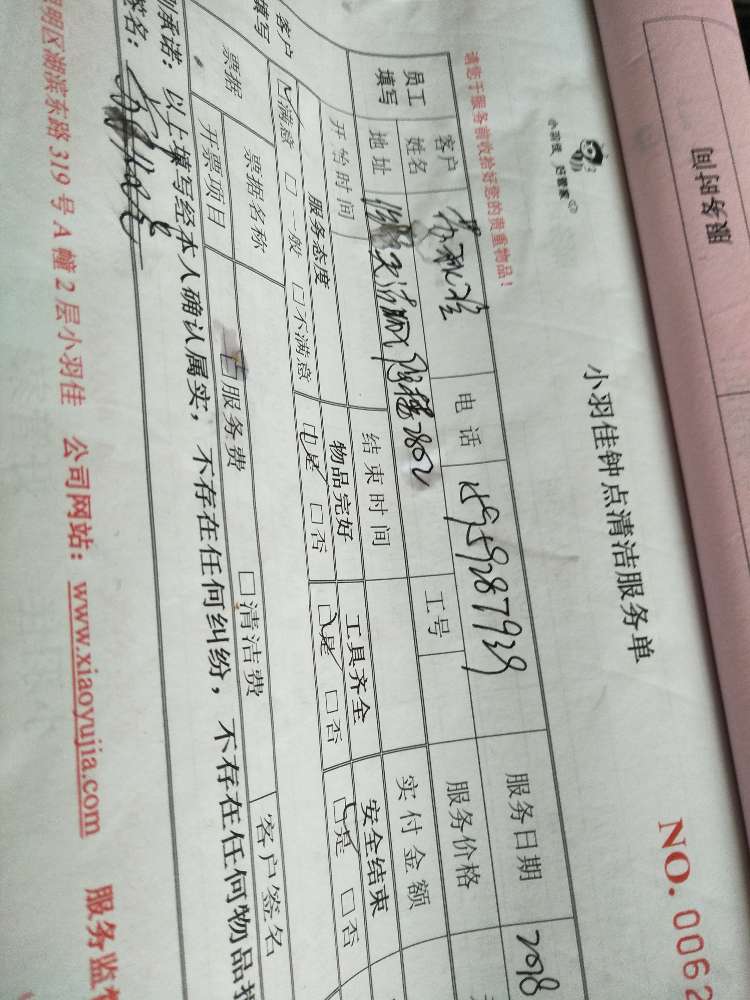 服务时间
小羽佳 好管家
小羽佳钟点清洁服务单
NO. 0062
请您于服务前收拾好您的贵重物品!
员工填写 客户姓名 电话 服务日期 2018
地址 2802 工号 服务价格
开始时间 结束时间 实付金额
客户填写 服务态度 物品完好 工具齐全 安全结束
☑满意 □一般 □不满意 ☑是 □否 ☑是 □否 ☑是 □否
票据 票据名称 客户签名
开票项目 □服务费 □清洁费
承诺:以上填写经本人确认属实,不存在任何纠纷,不存在任何物品
签名:
明区湖滨东路319号A幢2层小羽佳 公司网站:www.xiaoyujia.com 服务监